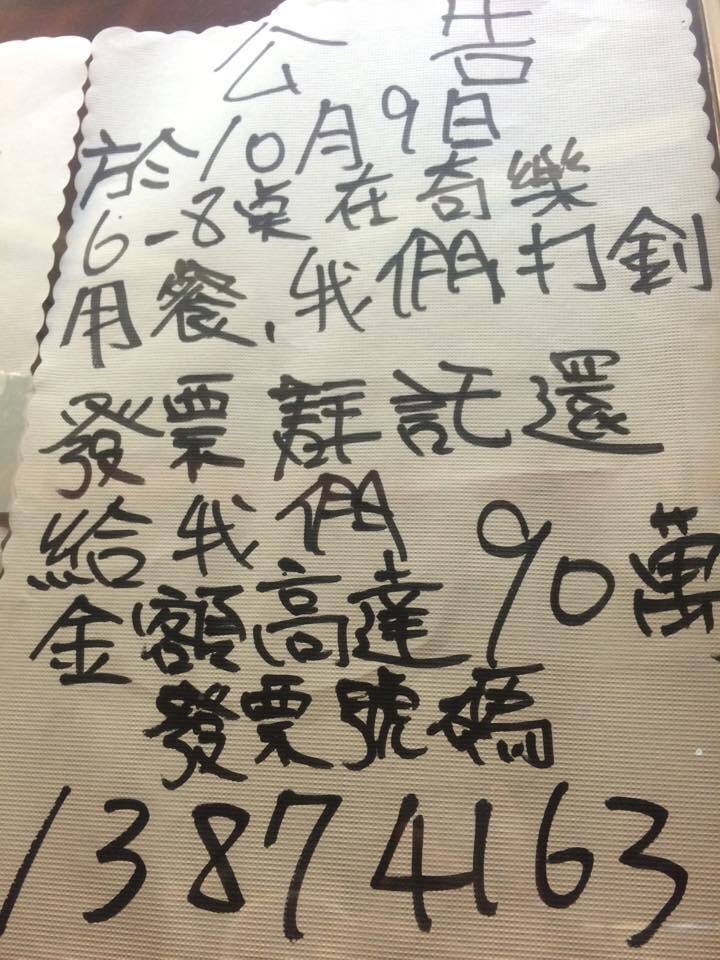 公告
於10月9日
6-8桌在奇樂
用餐,我們打釗
發票群託還
給我們
金額高達90萬
發票號碼
13874163